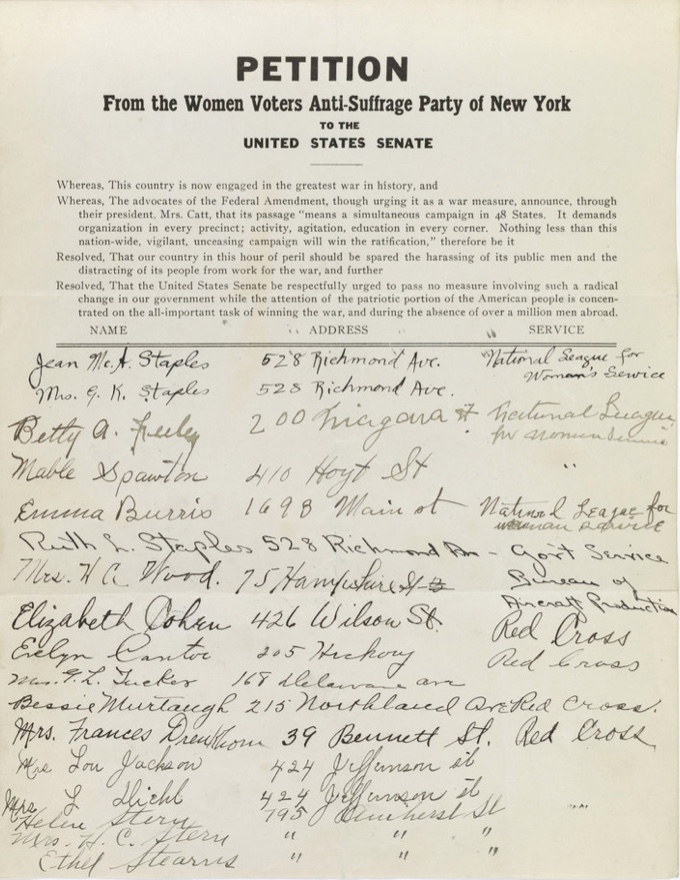 PETITION
From the Women Voters Anti-Suffrage Party of New York
TO THE
UNITED STATES SENATE
Whereas, This country is now engaged in the greatest war in history, and
Whereas, The advocates of the Federal Amendment, though urging it as a war measure, announce, through
their president, Mrs. Catt, that its passage "means a simultaneous campaign in 48 States. It demands
organization in every precinct; activity, agitation, education in every corner. Nothing less than this
nation-wide, vigilant, unceasing campaign will win the ratification," therefore be it
Resolved, That our country in this hour of peril should be spared the harassing of its public men and the
distracting of its people from work for the war, and further
Resolved, That the United States Senate be respectfully urged to pass no measure involving such a radical
change in our government while the attention of the patriotic portion of the American people is concen-
trated on the all-important task of winning the war, and during the absence of over a million men abroad.
NAME ADDRESS SERVICE
Jean Mc.A. Staples 528 Richmond Ave. National League for
Woman's Service
Mrs. G. K. Staples 528 Richmond Ave.
Betty A. 200 Niagara St National League
for Womens Service
Mable Spawton 410 Hoyt St "
Emma Burris 1698 Main st National League for
woman service
Ruth L. Staples 528 Richmond Av - Gov't Service
Mrs. H C. Wood. 75 Hampshire St Bureau of
Aircraft Production
Elizabeth Cohen 426 Wilson St. Red Cross
Evelyn Cantor 205 Hickory Red Cross
Mrs. F. L. Tucker 168 Delaware ave
Bessie Murtaugh 215 Northland Ave Red Cross.
Mrs. Frances 39 Bennett St. Red Cross
Mrs Lou Jackson 424 Jefferson st
Mrs L Diehl 424 Jefferson st
Helen Stern 795 Amherst St "
Mrs. H. C. Stern " " "
Ethel Stearns " " "